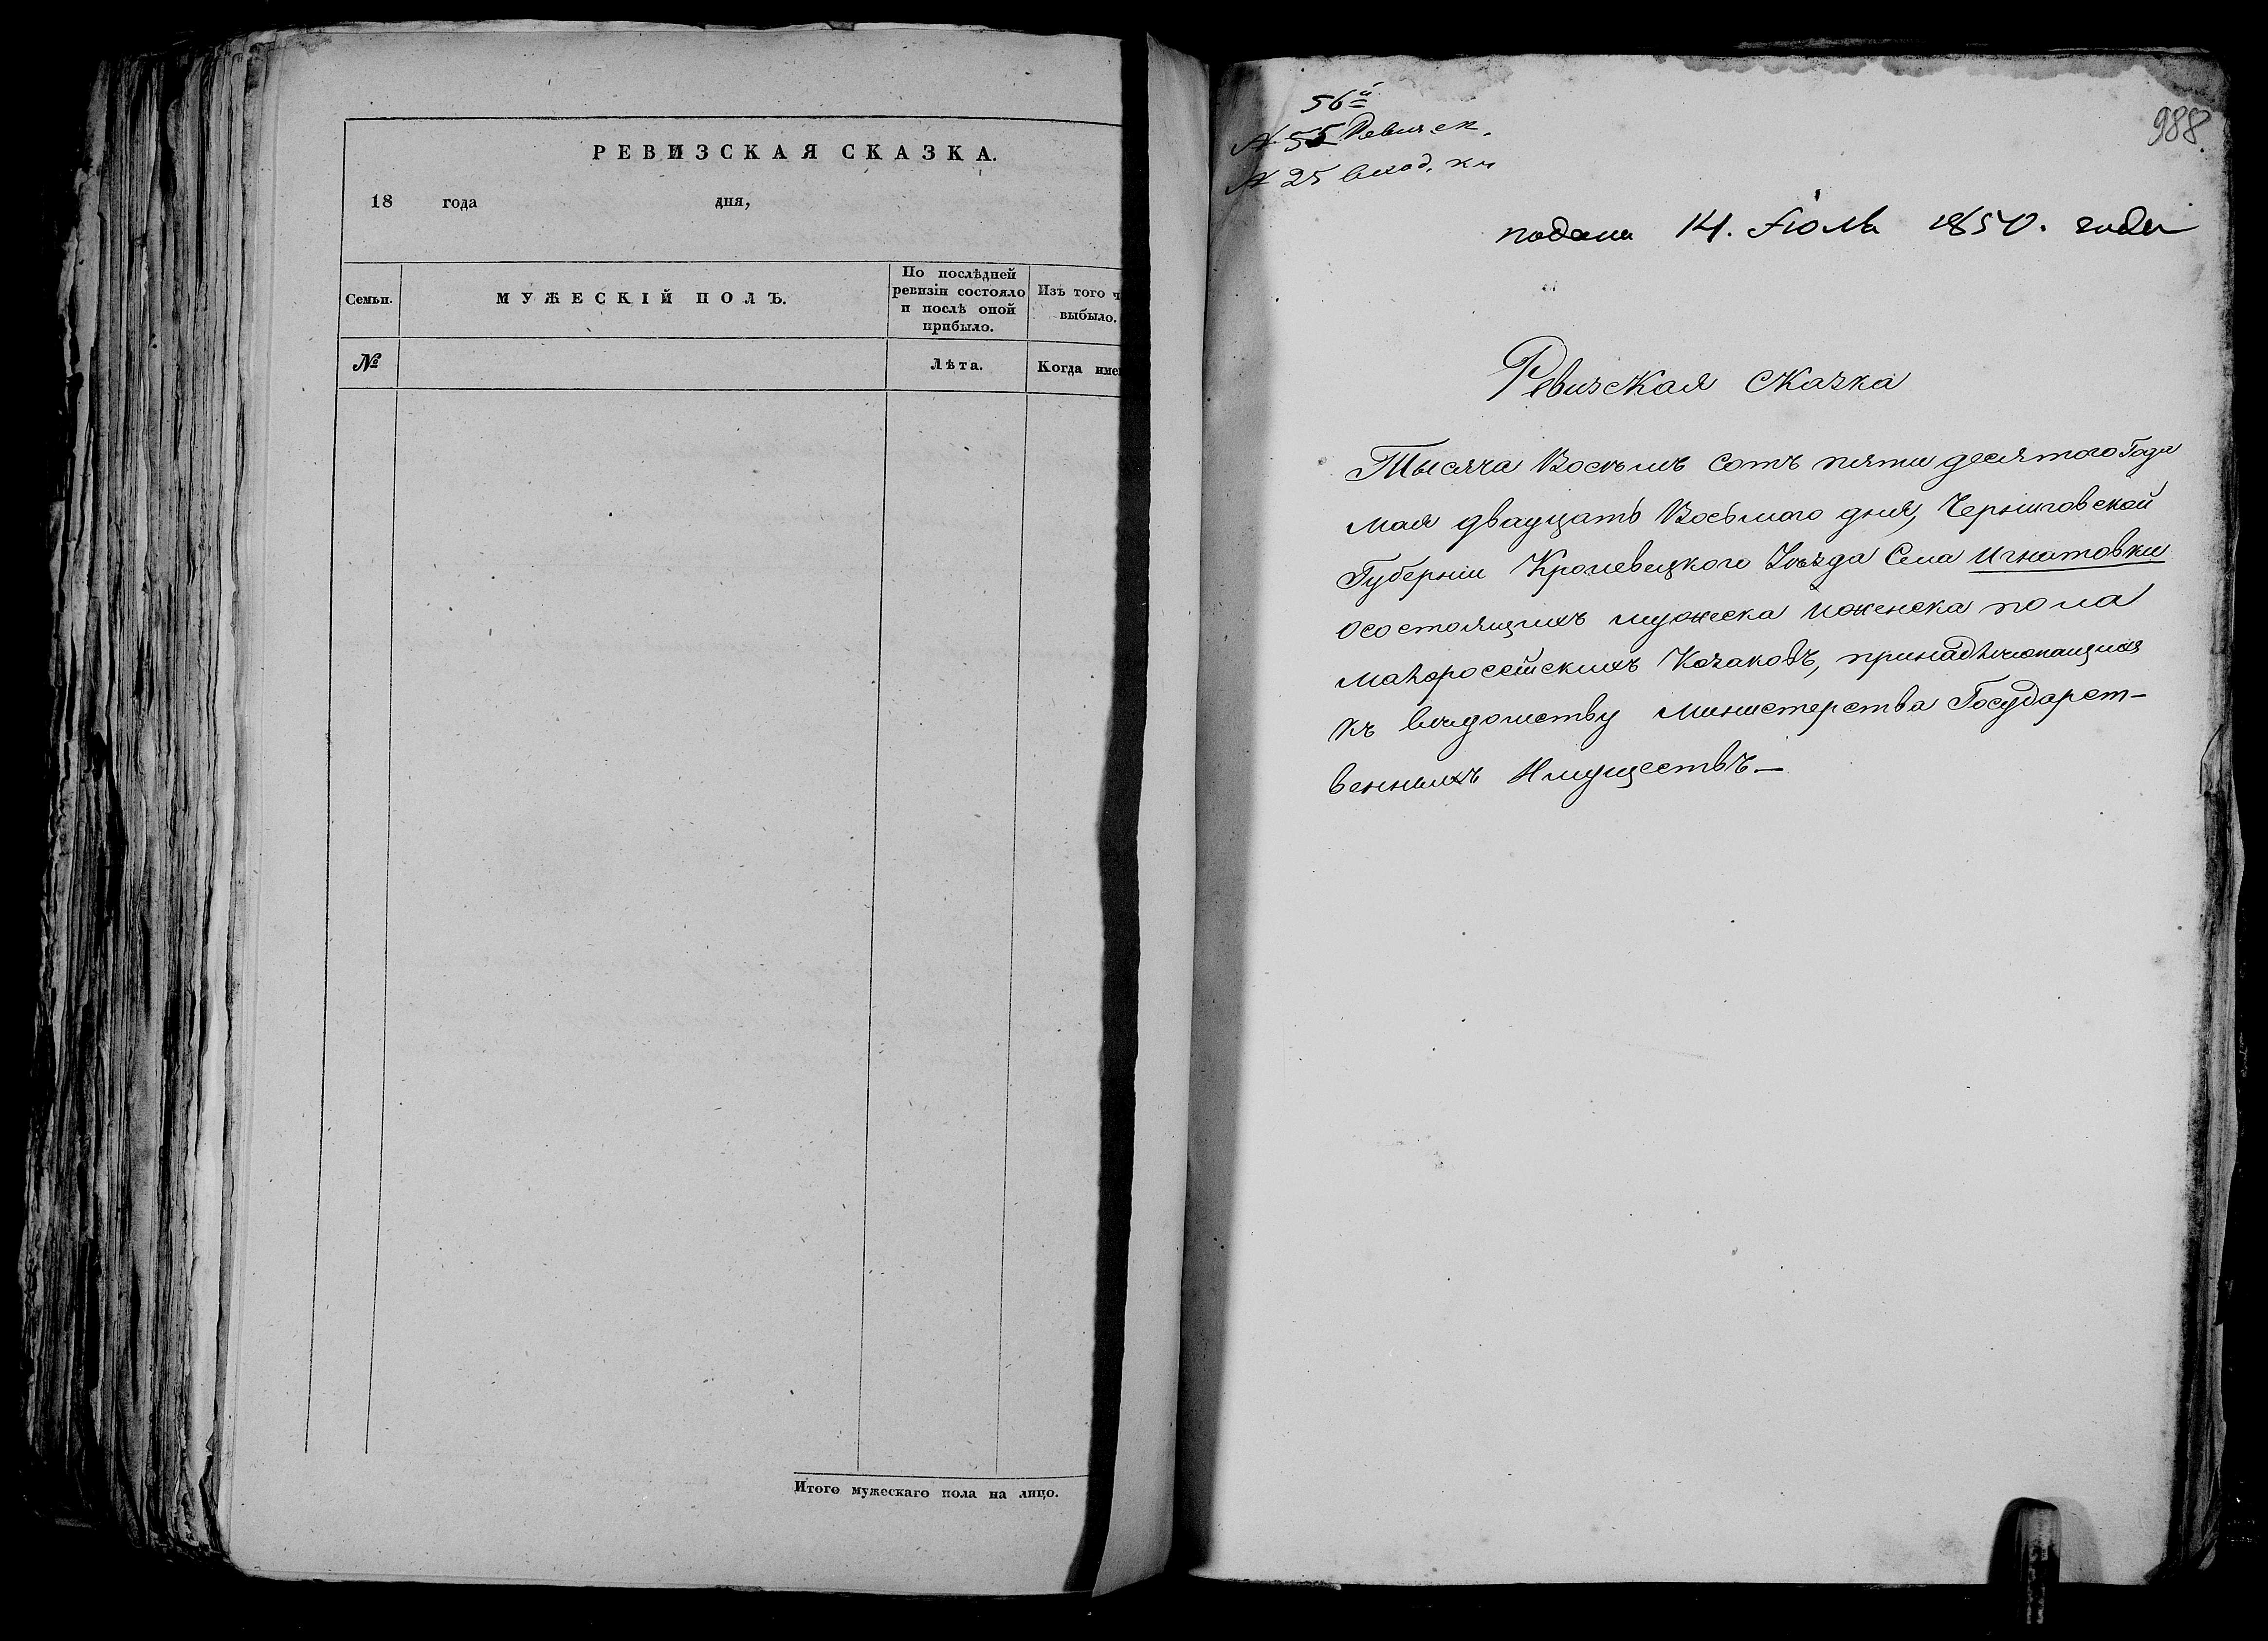 РЕВИЗСКАЯ СКАЗКА.
18 года дня,
Семьи.
МУЖЕСКІЙ ПОЛЪ.
По послѣдней
ревизіи состояло
и послѣ оной
прибыло.
Изъ того ч
выбыло.
№
Лѣта.
Когда име
Итого мужескаго пола на лицо.
56й
№ 55 Ревизск.
№ 25 вход. кн
988.
подана 14. Іюля 1850. года
Ревизская Сказка
Тысяча Восемь сотъ пяти десятого Года
Мая двадцать Восьмого дня, Черниговской
Губерніи Кролевецкого Уѣзда Села Игнатовки
О состоящихъ мужеска и женска пола
Малоросейскихъ Козаковъ, принадлежащихъ
къ вѣдомству Министерства Государст-
венныхъ Имуществъ—